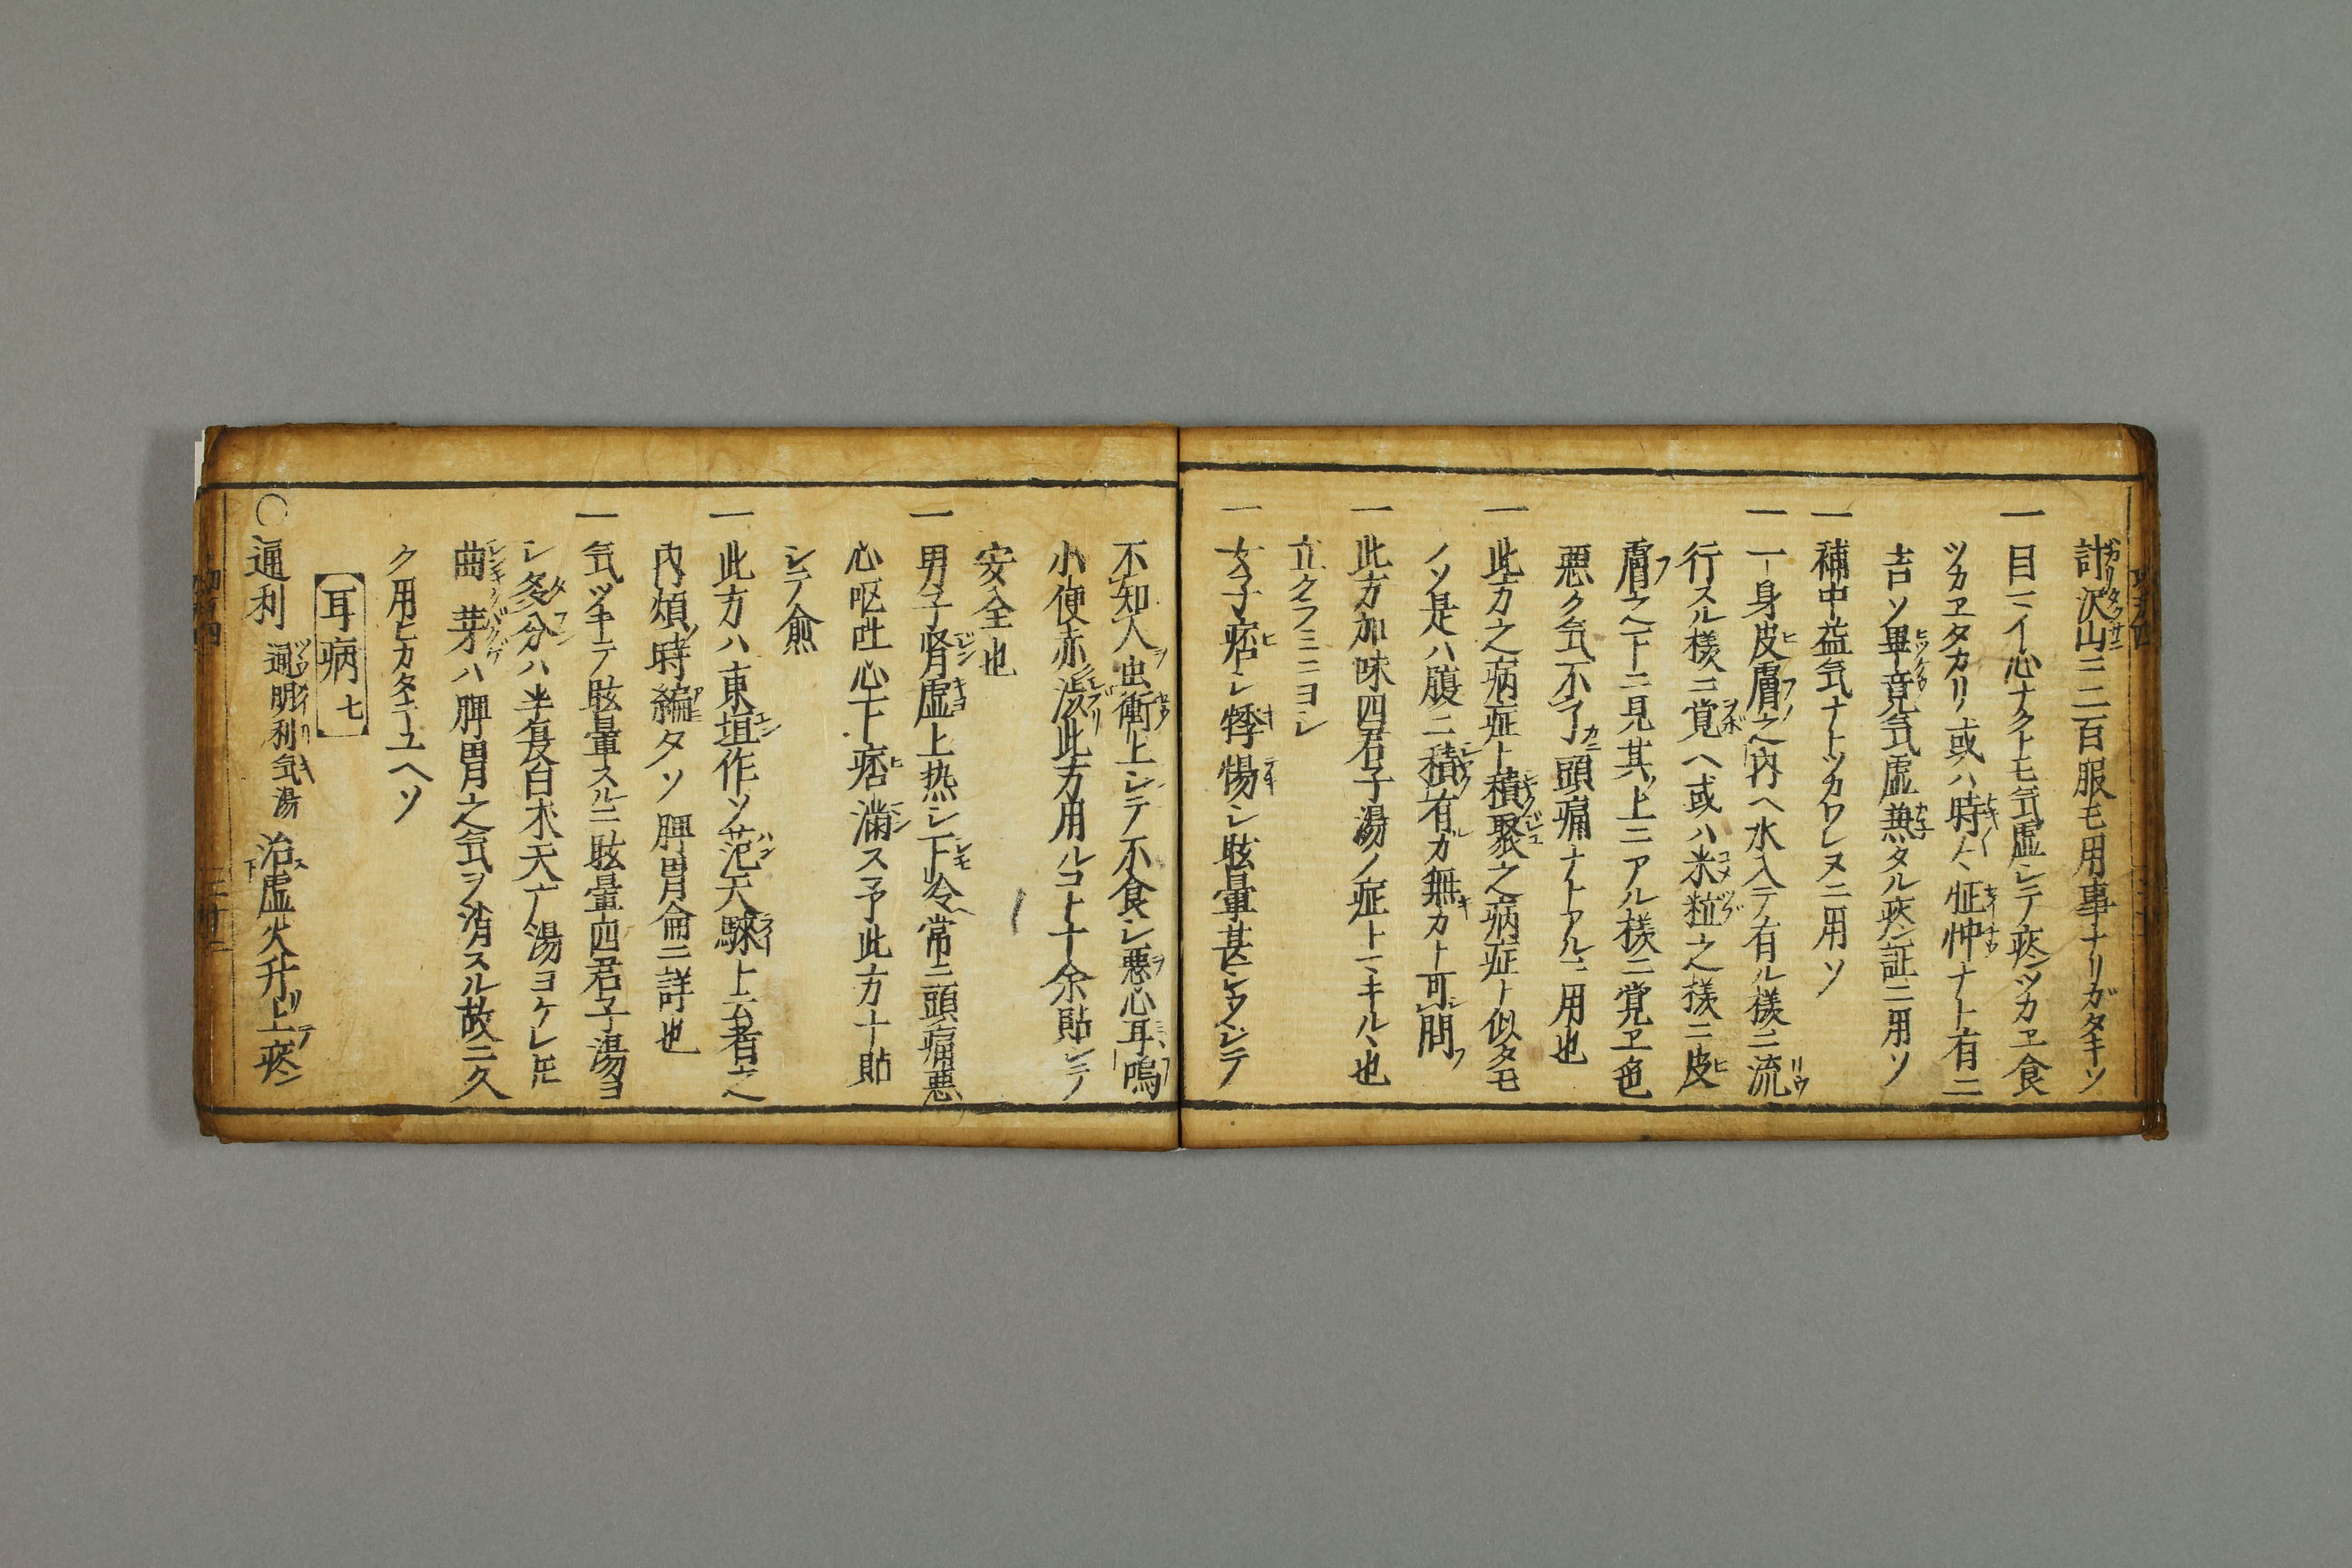 計沢山ニ二百服モ用事ナリガタキソ
一目マイ心ナクトモ気虚シテ痰ツカヱ食
ツカヱタカリ或ハ時々怔忡ナト有ニ
吉ソ畢竟気虚𠔥タル痰証ニ用ソ
一補中益気ナトツカワレヌニ用ソ
一一身皮膚之内ヘ水入テ有ル様ニ流
行スル様ニ覚ヘ或ハ米粒之様ニ皮
膚之下ニ見其上ニアル様ニ覚ヱ色
悪ク気不了頭痛ナトアルニ用也
一此方之病症ト積聚之病症ト似タモ
ノソ是ハ腹ニ積有カ無カト可問
一此方加味四君子湯ノ症トマキルヽ也
立クラミニヨシ
一女子痞シ悸惕シ眩暈甚シクシテ
不知人虫衝上シテ不食シ悪心耳鳴
小便赤渋此方用ルコト十余貼シテ
安全也
一男子腎虚上热シ下冷常ニ頭痛悪
心呕吐心下痞満ス予此方十貼
シテ愈
一此方ハ東垣作ソ范天騋ト云者之
内煩時編タソ脾胃侖ニ詳也
一気ツキテ眩暈スルニ眩暈四君子湯ヨ
シ多分ハ半夏白朮天广湯ヨケレ𪜈
曲芽ハ脾胃之気ヲ消スル故ニ久
ク用ヒカタキユヘソ
耳病 七
○通利 通明利気湯 治虚火升上痰